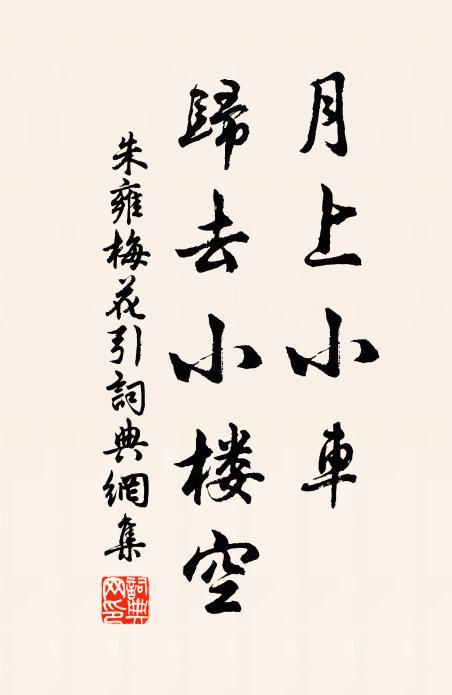 月上小車
歸去小楼空
朱雍梅花引詞典網集
詞典網印